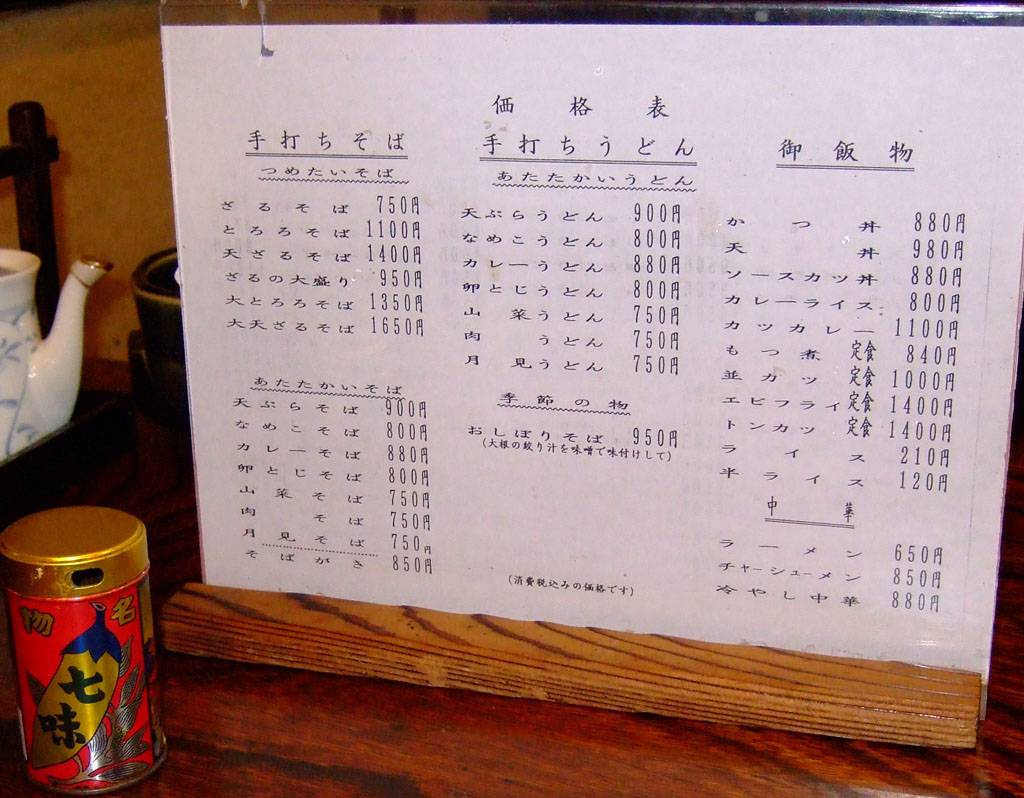 価格表
手打ちそば
つめたいそば
ざるそば 750円
とろろそば 1100円
天ざるそば 1400円
ざるの大盛り 950円
大とろろそば 1350円
大天ざるそば 1650円
あたたかいそば
天ぷらそば 900円
なめこそば 800円
カレーそば 880円
卵とじそば 800円
山菜そば 750円
肉そば 750円
月見そば 750円
そばがき 850円
手打ちうどん
あたたかいうどん
天ぷらうどん 900円
なめこうどん 800円
カレーうどん 880円
卵とじうどん 800円
山菜うどん 750円
肉うどん 750円
月見うどん 750円
季節の物
おしぼりそば 950円
(大根の絞り汁を味噌で味付けして)
(消費税込みの価格です)
御飯物
かつ丼 880円
天丼 980円
ソースカツ丼 880円
カレーライス 800円
カツカレー 1100円
もつ煮定食 840円
並カツ定食 1000円
エビフライ定食 1400円
トンカツ定食 1400円
ライス 210円
半ライス 120円
中華
ラーメン 650円
チャーシューメン 850円
冷やし中華 880円
名物
七味